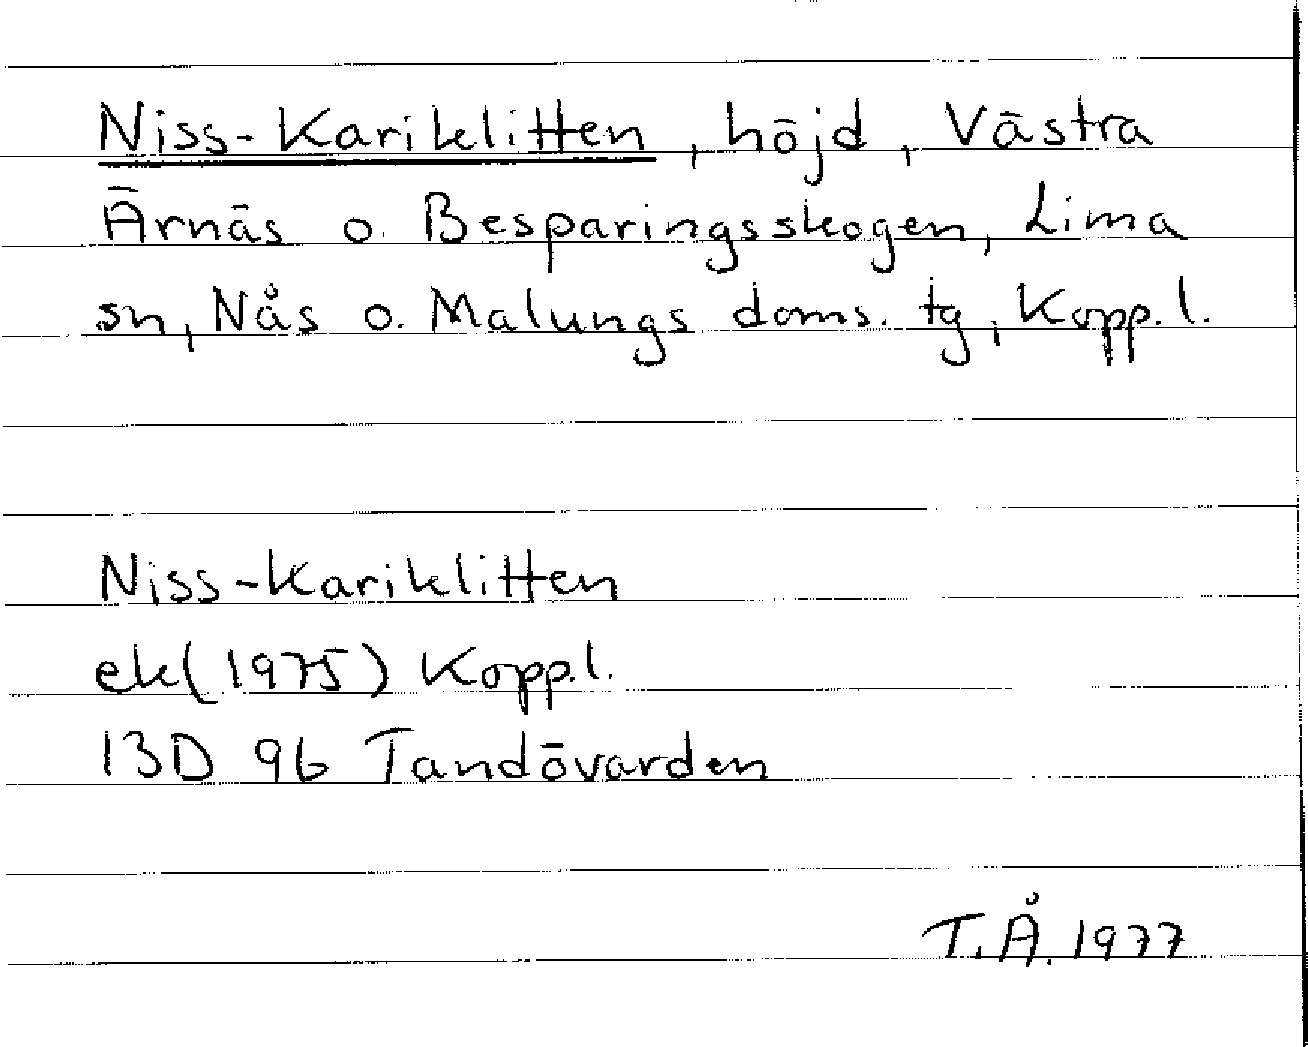 Niss-Kariklitten, höjd, Västra
Ärnäs o. Besparingsskogen, Lima
sn, Nås o. Malungs doms. tg, Kopp.l.
Niss-Kariklitten
ek(1975) Kopp.l.
13D 9b Tandövarden
T.Å.1977